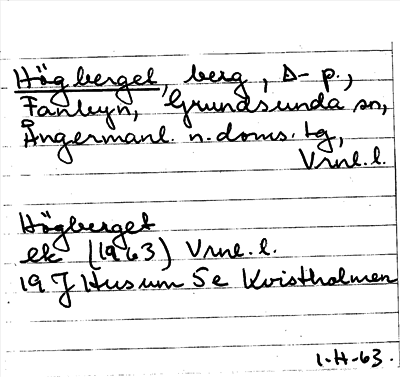 Högberget, berg, D- p.,
Fanbyn, Grundsunda sn,
Ångermanl. n. doms. tg,
Vrnl. l.
Högberget
ek (1963) Vrnl. l.
19 J Husum 5e Kvistholmen
1-H-63.